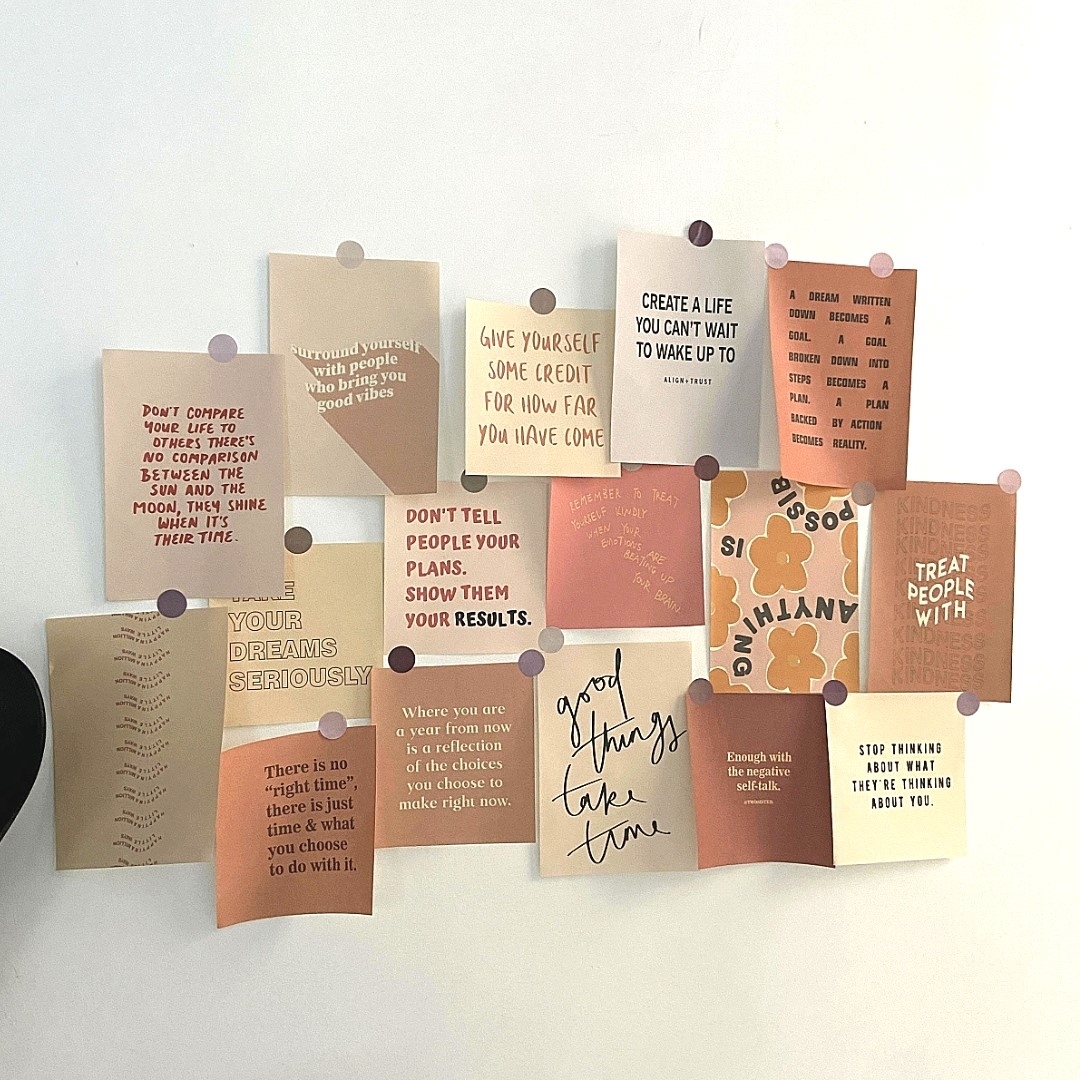 surround yourself
with people
who bring you
good vibes
GIVE YOURSELF
SOME CREDIT
FOR HOW FAR
YOU HAVE COME
CREATE A LIFE
YOU CAN'T WAIT
TO WAKE UP TO
ALIGN+TRUST
A DREAM WRITTEN
DOWN BECOMES A
GOAL. A GOAL
BROKEN DOWN INTO
STEPS BECOMES A
PLAN. A PLAN
BACKED BY ACTION
BECOMES REALITY.
DON'T COMPARE
YOUR LIFE TO
OTHERS THERE'S
NO COMPARISON
BETWEEN THE
SUN AND THE
MOON, THEY SHINE
WHEN IT'S
THEIR TIME.
TAKE
YOUR
DREAMS
SERIOUSLY
DON'T TELL
PEOPLE YOUR
PLANS.
SHOW THEM
YOUR RESULTS.
REMEMBER TO TREAT
YOURSELF KINDLY
WHEN YOUR
EMOTIONS ARE
BEATING UP
YOUR BRAIN.
ANYTHING
IS
POSSIB
KINDNESS
KINDNESS
KINDNESS
KINDNESS
TREAT
PEOPLE
WITH
KINDNESS
KINDNESS
KINDNESS
There is no
"right time",
there is just
time & what
you choose
to do with it.
Where you are
a year from now
is a reflection
of the choices
you choose to
make right now.
good
things
take
time
Enough with
the negative
self-talk.
STOP THINKING
ABOUT WHAT
THEY'RE THINKING
ABOUT YOU.